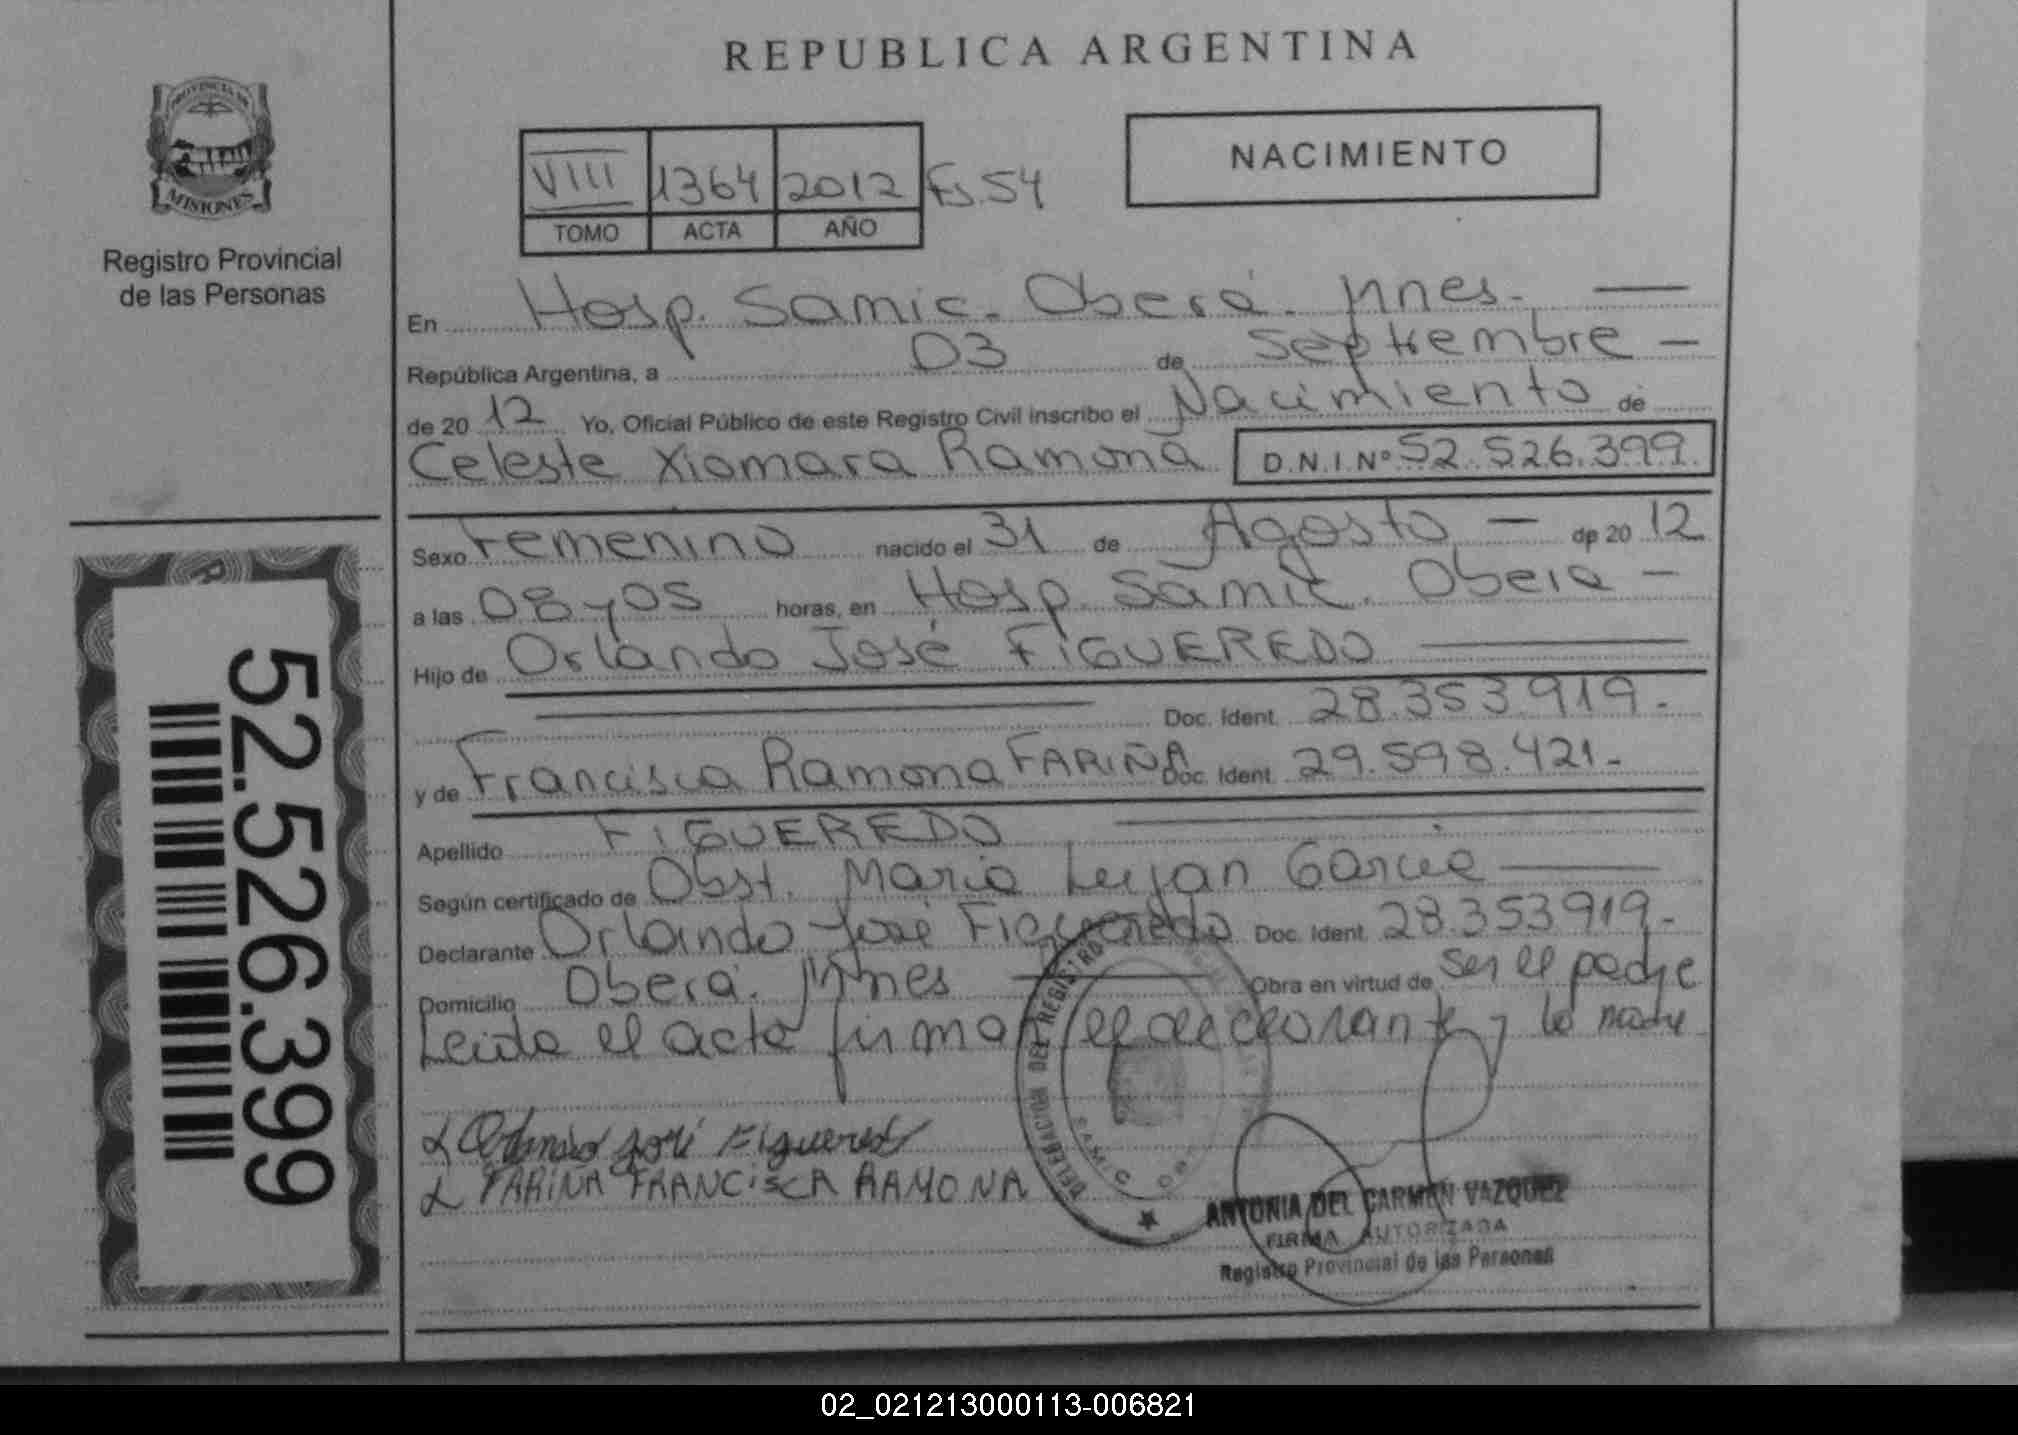 REPUBLICA ARGENTINA
PROVINCIA DE
MISIONES
Registro Provincial
de las Personas
NACIMIENTO
VIII 1364 2012 Fs. 54
TOMO ACTA AÑO
En Hosp. Samic. Oberá. Mnes. —
República Argentina, a 03 de Septiembre —
de 20 12 Yo, Oficial Público de este Registro Civil inscribo el Nacimiento de
Celeste Xiomara Ramona D.N.I Nº 52.526.399
Sexo Femenino nacido el 31 de Agosto — de 20 12
a las 08 y 05 horas, en Hosp. Samic. Oberá —
Hijo de Orlando José FIGUEREDO
Doc. Ident. 28.353.919.-
y de Francisca Ramona FARIÑA Doc. Ident. 29.598.421.-
Apellido FIGUEREDO
Según certificado de Obst. Maria Lujan Garcia
Declarante Orlando José Figueredo Doc. Ident. 28.353919.-
Domicilio Oberá. Mnes Obra en virtud de ser el padre
Leida el acta firman el declarante y la madre
Orlando José Figueredo
FARIÑA FRANCISCA RAMONA
DELEGACION DEL REGISTRO
ANTONIA DEL CARMEN VAZQUEZ
FIRMA AUTORIZADA
Registro Provincial de las Personas
52.526.399
02_021213000113-006821